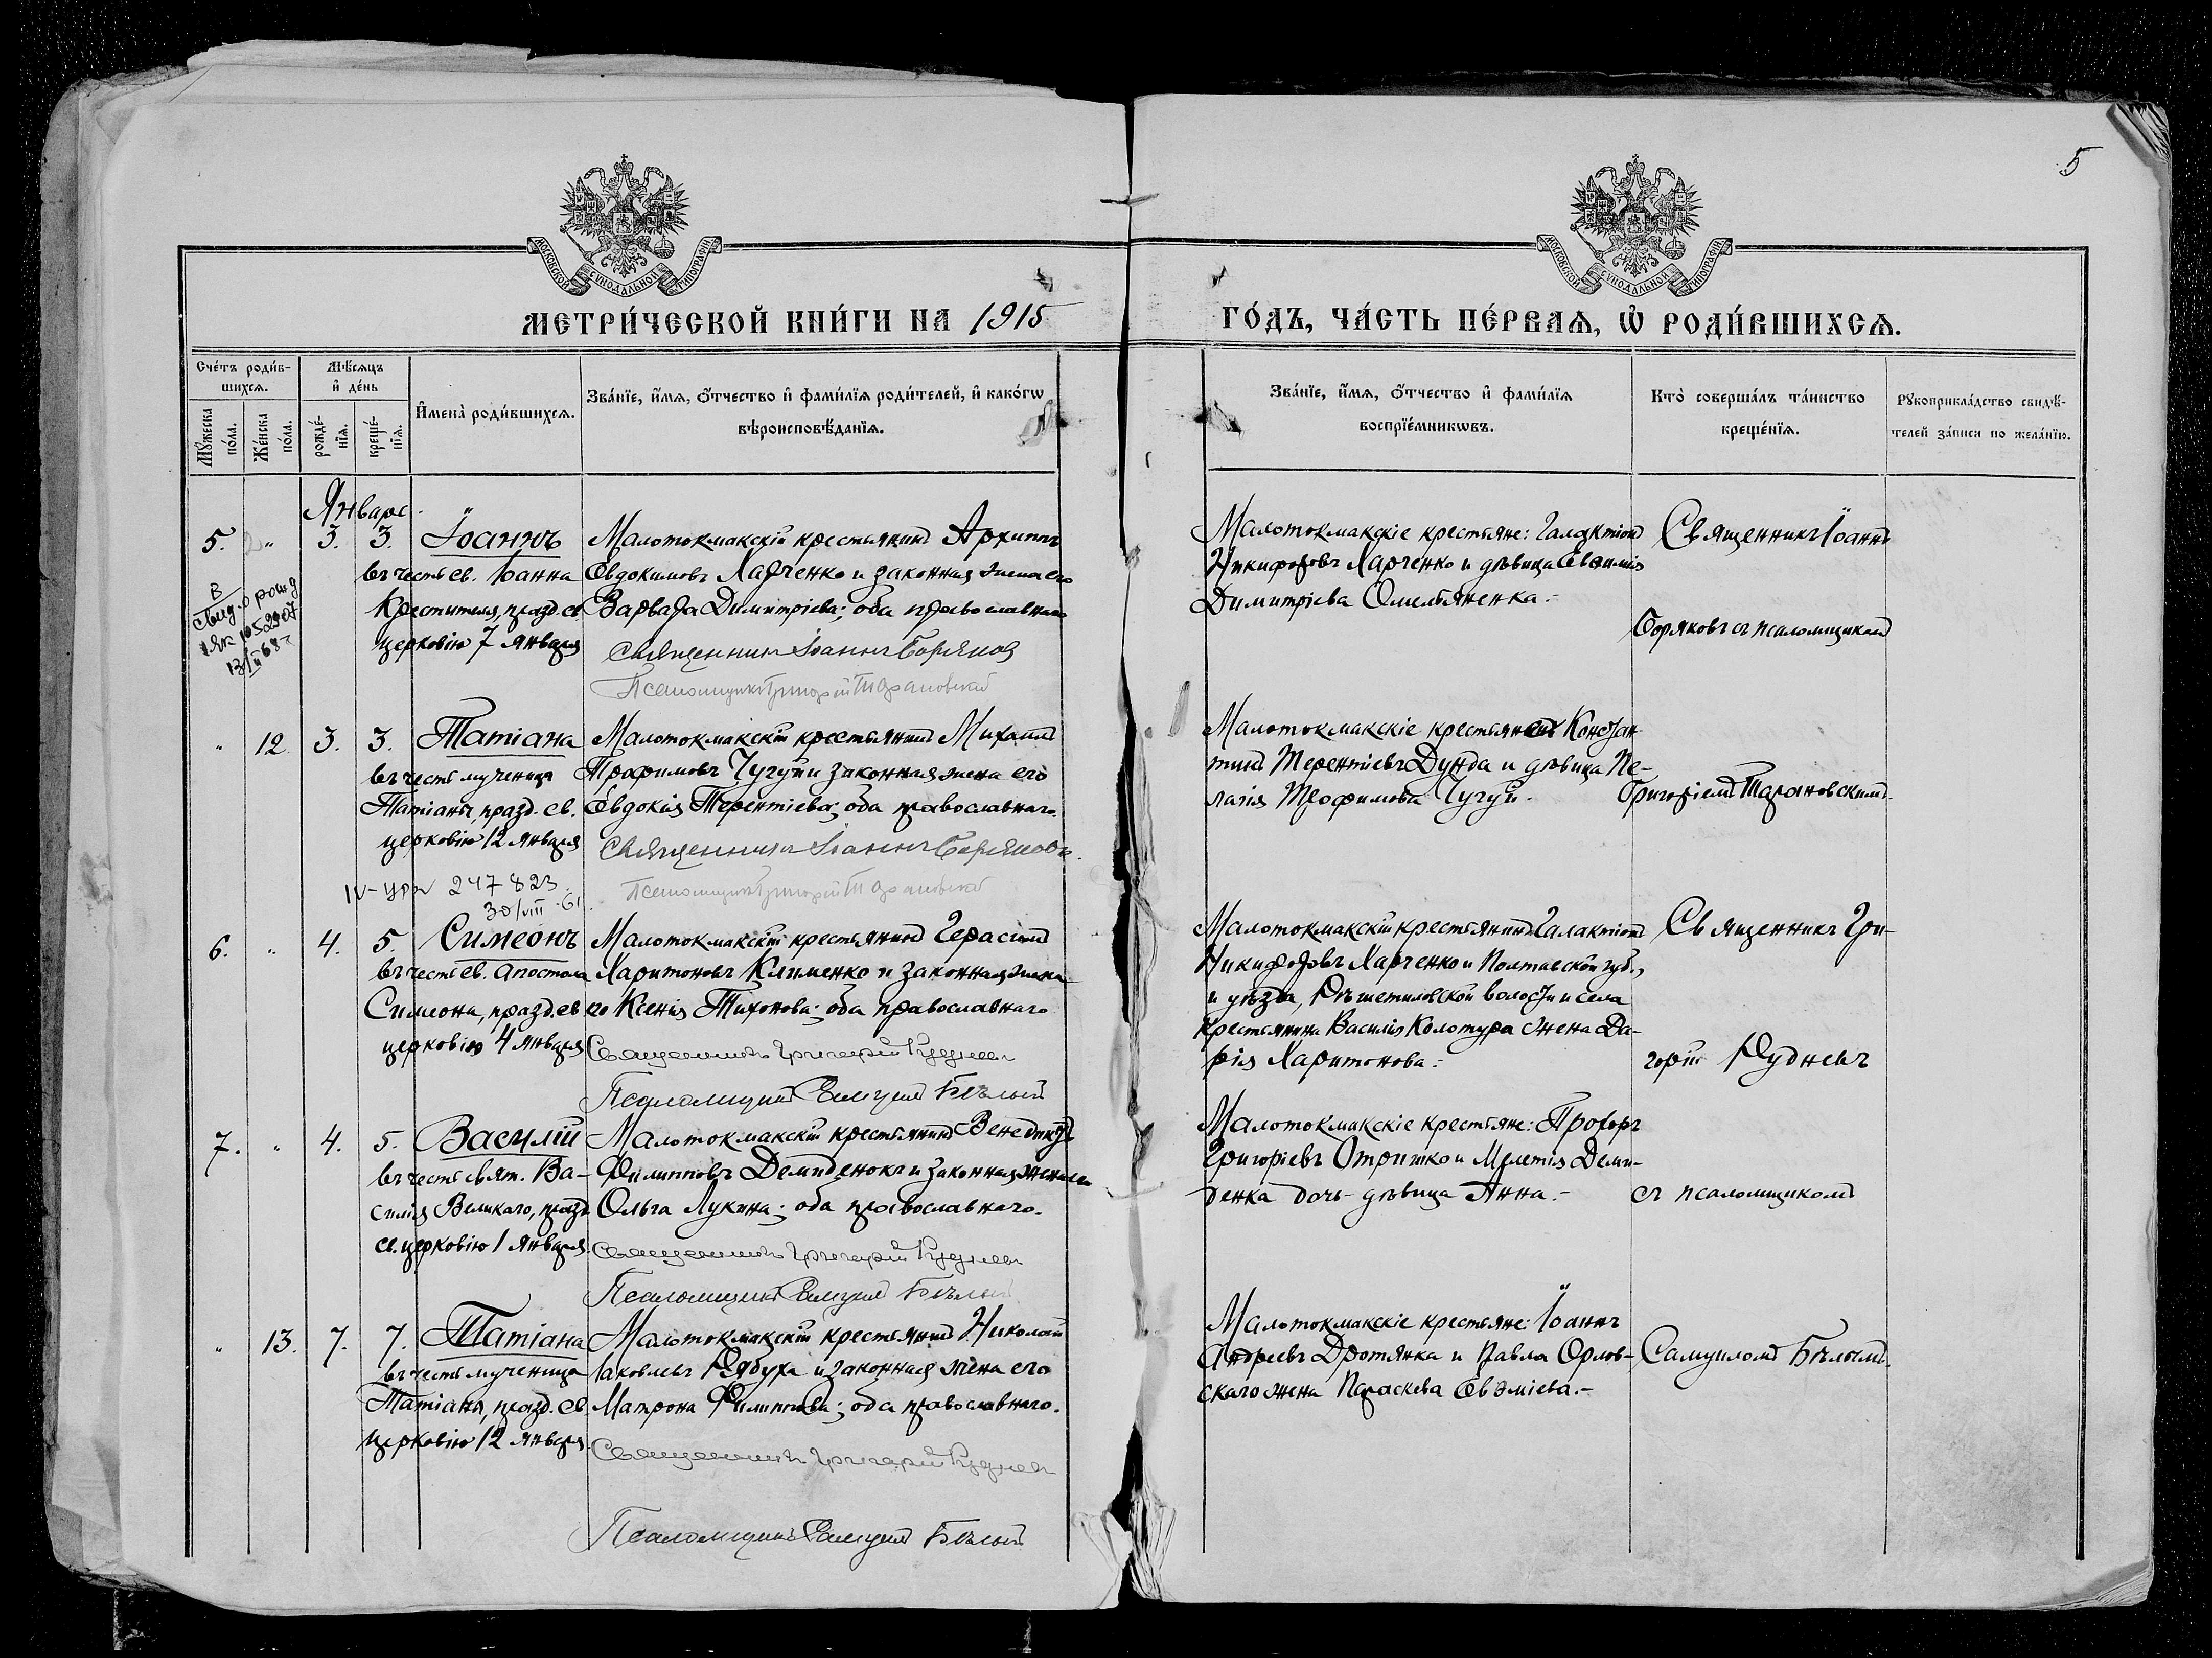 5
МОСКОВСКОЙ СУНОДАЛЬНОЙ ТИПОГРАФІИ
МОСКОВСКОЙ СУНОДАЛЬНОЙ ТИПОГРАФІИ
МЕТРИ́ЧЕСКОЙ КНИ́ГИ НА 1915
ГО́ДЪ, ЧА́СТЬ ПЕ́РВАѦ, Ѡ҆ РОДИ́ВШИХСѦ.
Сче́тъ роди́в-
шихсѧ.
Мꙋ́жеска
по́ла.
Же́нска
по́ла.
Мѣ́сѧцъ
и҆ де́нь
рожде́-
нїѧ.
креще́-
нїѧ.
И҆мена̀ роди́вшихсѧ.
Зва́нїе, и҆́мѧ, ѻ҆́тчество и҆ фами́лїѧ роди́телей, и҆ како́гѡ
вѣроисповѣ́данїѧ.
Зва́нїе, и҆́мѧ, ѻ҆́тчество и҆ фами́лїѧ
воспрїе́мникѡвъ.
Кто̀ соверша́лъ та́инство
креще́нїѧ.
Рꙋкоприкла́дство свидѣ́-
телей за́писи по жела́нїю.
Январь
5. " 3. 3. Іоаннъ
въ честь св. Іоанна
Крестителя, празд. св
церковію 7 января
В
свид. о рожд
IЯк 1052907
13/II 68 г
Малотокмакскій крестьянинъ Архиппъ
Евдокимовъ Харченко и законная жена его
Варвара Димитріева; оба православнаго
Священникъ Іоаннъ Боряковъ
Псаломщикъ Григорій Тарановскій
Малотокмакскіе крестьяне: Галактіонъ
Никифоровъ Харченко и дѣвица Евфимія
Димитріева Омельяненка.-
Священникъ Іоаннъ
Боряковъ съ псаломщикомъ
" 12 3. 3. Татіана
въ честь мученицы
Татіаны, празд. св.
церковію 12 января
IV-УРЯ 247823
30/VIII-61.
Малотокмакскій крестьянинъ Михаилъ
Трофимовъ Чугуй и законная жена его
Евдокія Терентіева; оба православнаго.
Священникъ Іоаннъ Боряковъ.
Псаломщикъ Григорій Тарановскій
Малотокмакскіе крестьяне Констан-
тинъ Терентіевъ Дунда и дѣвица Пе-
лагія Трофимова Чугуй.
Григоріемъ Тарановскимъ.
6. " 4. 5. Симеонъ
въ честь св. Апостола
Симеона, празд. св
церковію 4 января
Малотокмакскій крестьянинъ Герасимъ
Харитоновъ Клименко и законная жена
его Ксенія Тихонова; оба православнаго
Священникъ Григорій Рудневъ
Псаломщикъ Самуилъ Бѣлый
Малотокмакскій крестьянинъ Галактіонъ
Никифоровъ Харченко и Полтавской губ.,
и уѣзда, Рѣшетиловской волости и села
крестьянина Василія Колотура жена Да-
рія Харитонова.-
Священникъ Гри-
горій Рудневъ
7. " 4. 5. Василій
въ честь свят. Ва-
силія Великаго, празд
св. церковію 1 января.
Малотокмакскій крестьянинъ Венедиктъ
Филипповъ Демиденокъ и законная жена его
Ольга Лукина; оба православнаго.
Священникъ Григорій Рудневъ
Псаломщикъ Самуилъ Бѣлый
Малотокмакскіе крестьяне: Прохоръ
Григоріевъ Отришко и Мелетія Деми-
денка дочь-дѣвица Анна.-
съ псаломщикомъ
" 13. 7. 7. Татіана
въ честь мученицы
Татіаны, празд. св.
церковію 12 января.
Малотокмакскій крестьянинъ Николай
Іаковлевъ Рябуха и законная жена его
Матрона Филиппова; оба православнаго.
Священникъ Григорій Рудневъ
Псаломщикъ Самуилъ Бѣлый
Малотокмакскіе крестьяне: Іоаннъ
Андреевъ Дротянка и Павла Орлов-
скаго жена Параскева
Самуиломъ Бѣлымъ.